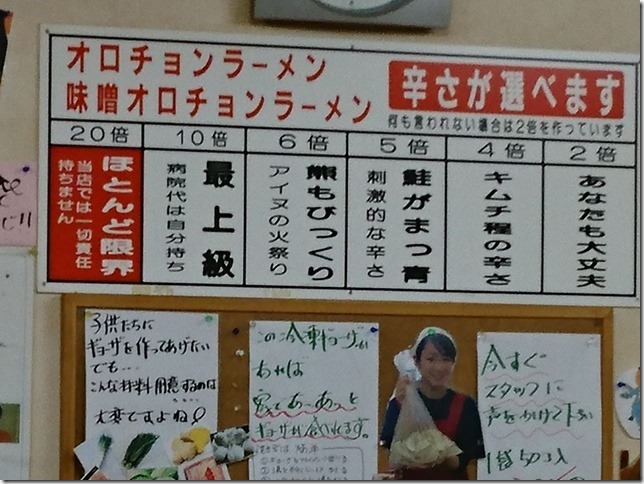 オロチョンラーメン
味噌オロチョンラーメン
辛さが選べます
何も言われない場合は2倍を作っています
20倍
10倍
6倍
5倍
4倍
2倍
あなたも大丈夫
キムチ程の辛さ
鮭がまっ青
刺激的な辛さ
熊もびっくり
アイヌの火祭り
最上級
病院代は自分持ち
ほとんど限界
当店では一切責任
持ちません
子供たちに
ギョーザを作ってあげたい
でも…
こんな材料用意するのは
大変ですよね
この冷凍ギョーザが
あれば
ギョーザが
今すぐ
スタッフに
声をかけて下さい
1袋50コ入